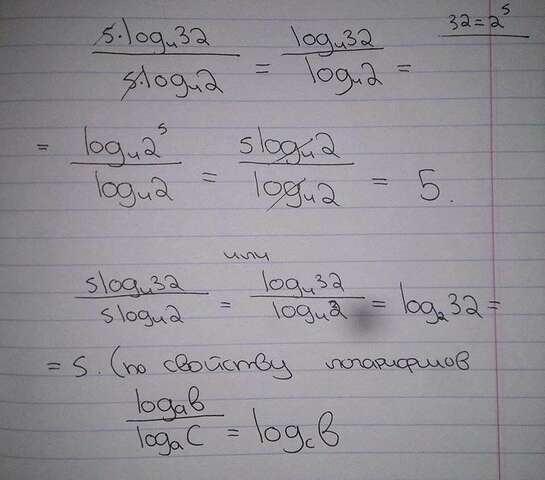 32 = 2⁵
5·log₄32 / 5·log₄2 = log₄32 / log₄2 =
= log₄2⁵ / log₄2 = 5log₄2 / log₄2 = 5.
или
5log₄32 / 5log₄2 = log₄32 / log₄2 = log₂32 =
= 5. (по свойству логарифмов
logₐb / logₐc = log꜀b